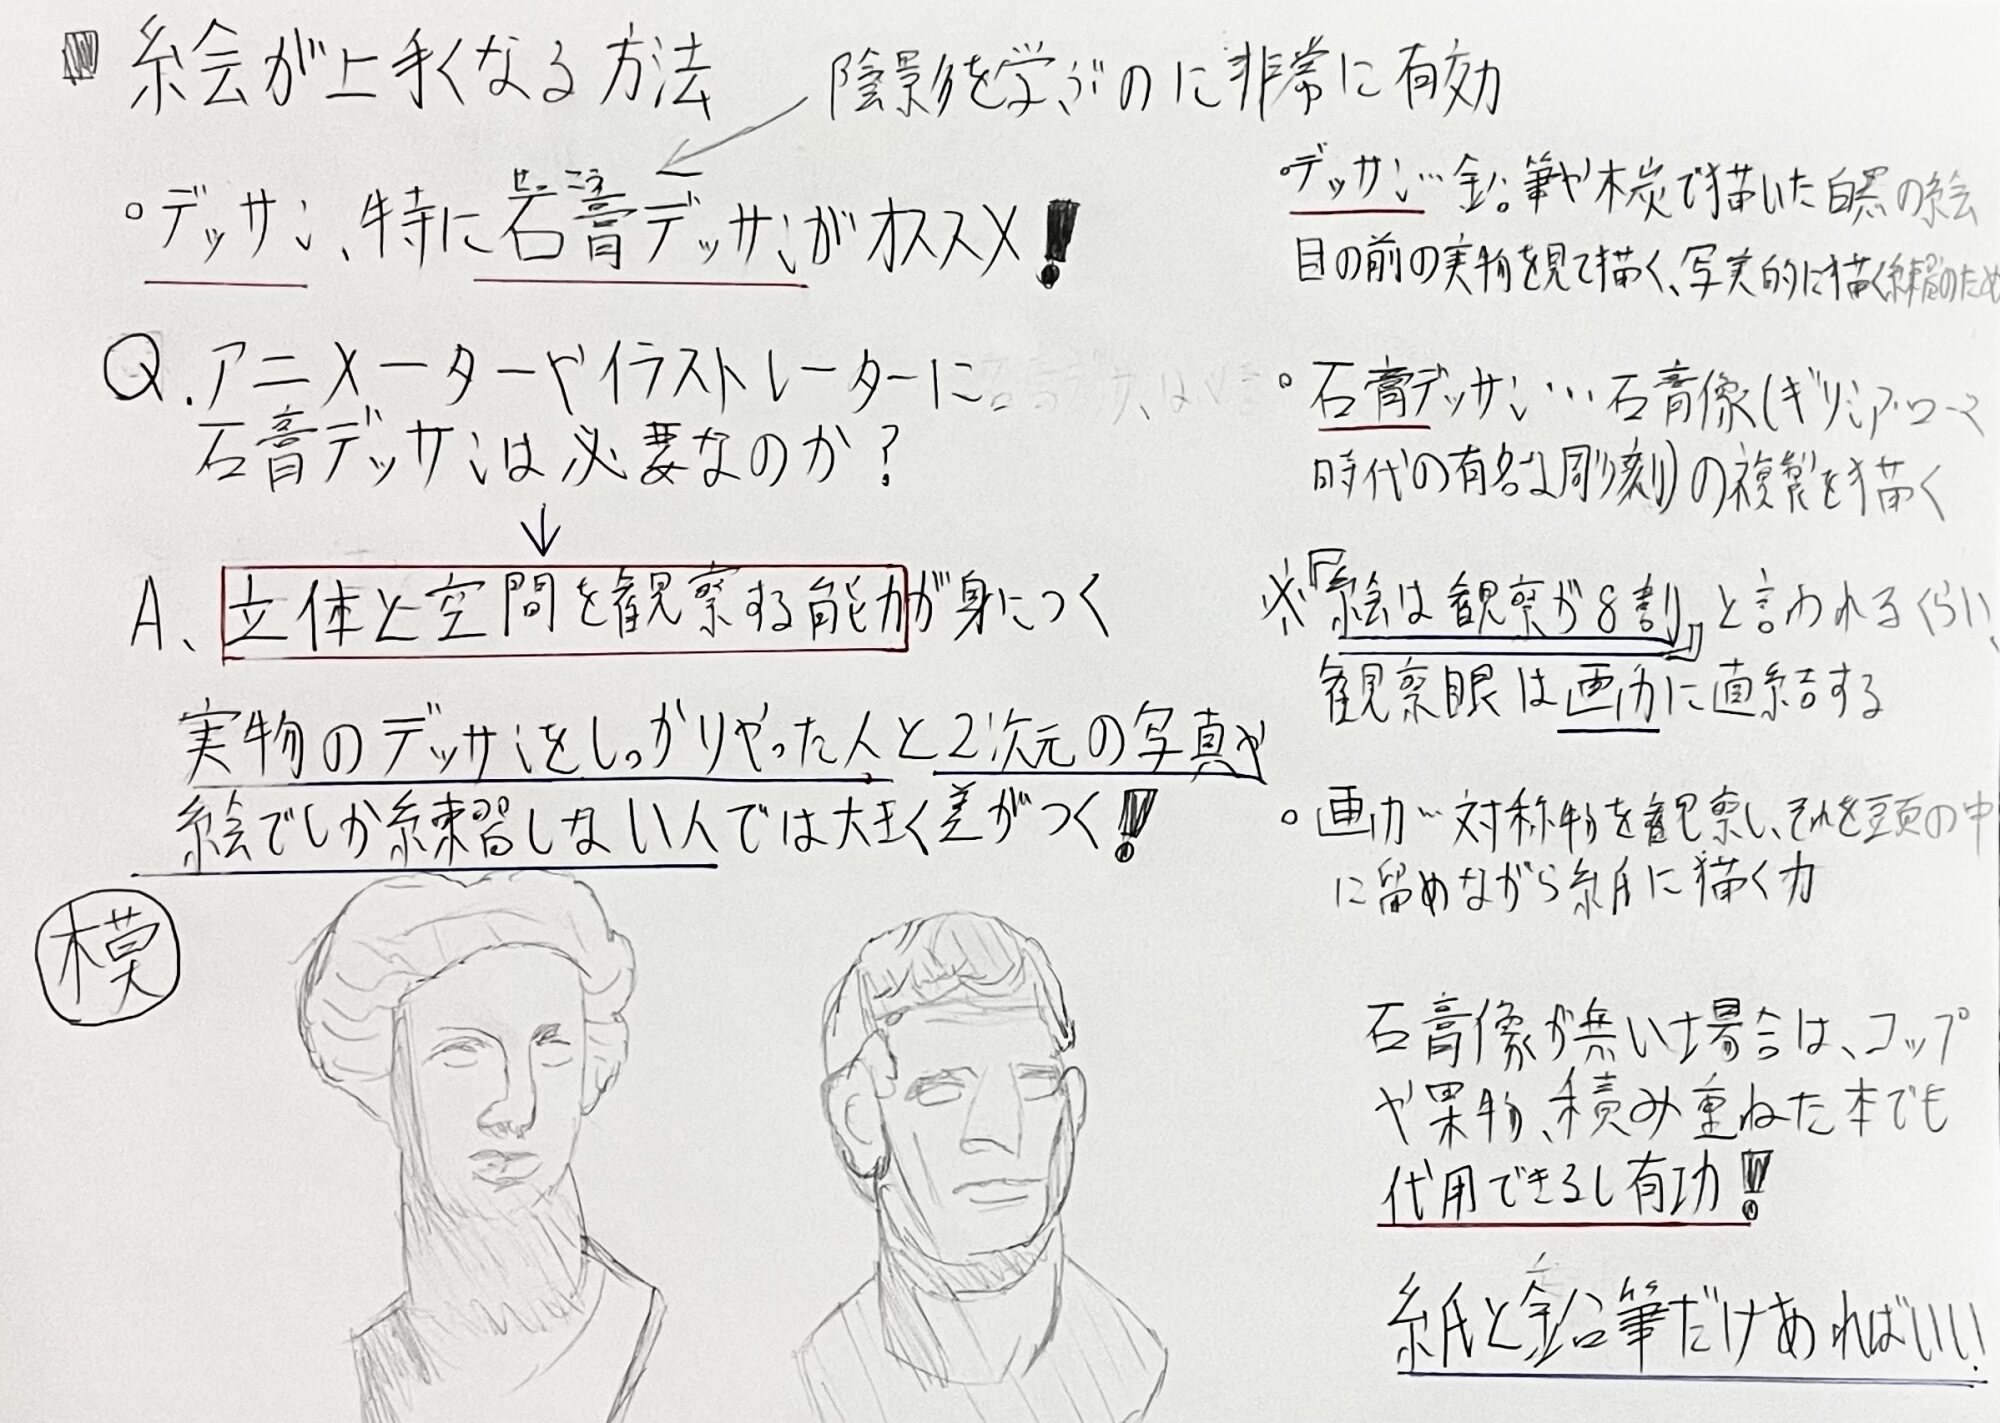 絵が上手くなる方法
陰影を学ぶのに非常に有効
。デッサン、特に石膏デッサンがオススメ!
せっこう
Q.アニメーターやイラストレーターに
石膏デッサンは必要なのか?
↓
A、立体と空間を観察する能力が身につく
実物のデッサンをしっかりやった人と2次元の写真や
絵でしか練習しない人では大きく差がつく!
模
。デッサン…鉛筆や木炭で描いた白黒の絵
目の前の実物を見て描く、写実的に描く練習のため
。石膏デッサン…石膏像(ギリシア・ローマ
時代の有名な彫刻)の複製を描く
※『絵は観察が8割』と言われるくらい、
観察眼は画力に直結する
。画力…対称物を観察し、それを頭の中
に留めながら紙に描く力
石膏像が無い場合は、コップ
や果物、積み重ねた本でも
代用できるし有効!
紙と鉛筆だけあればいい!